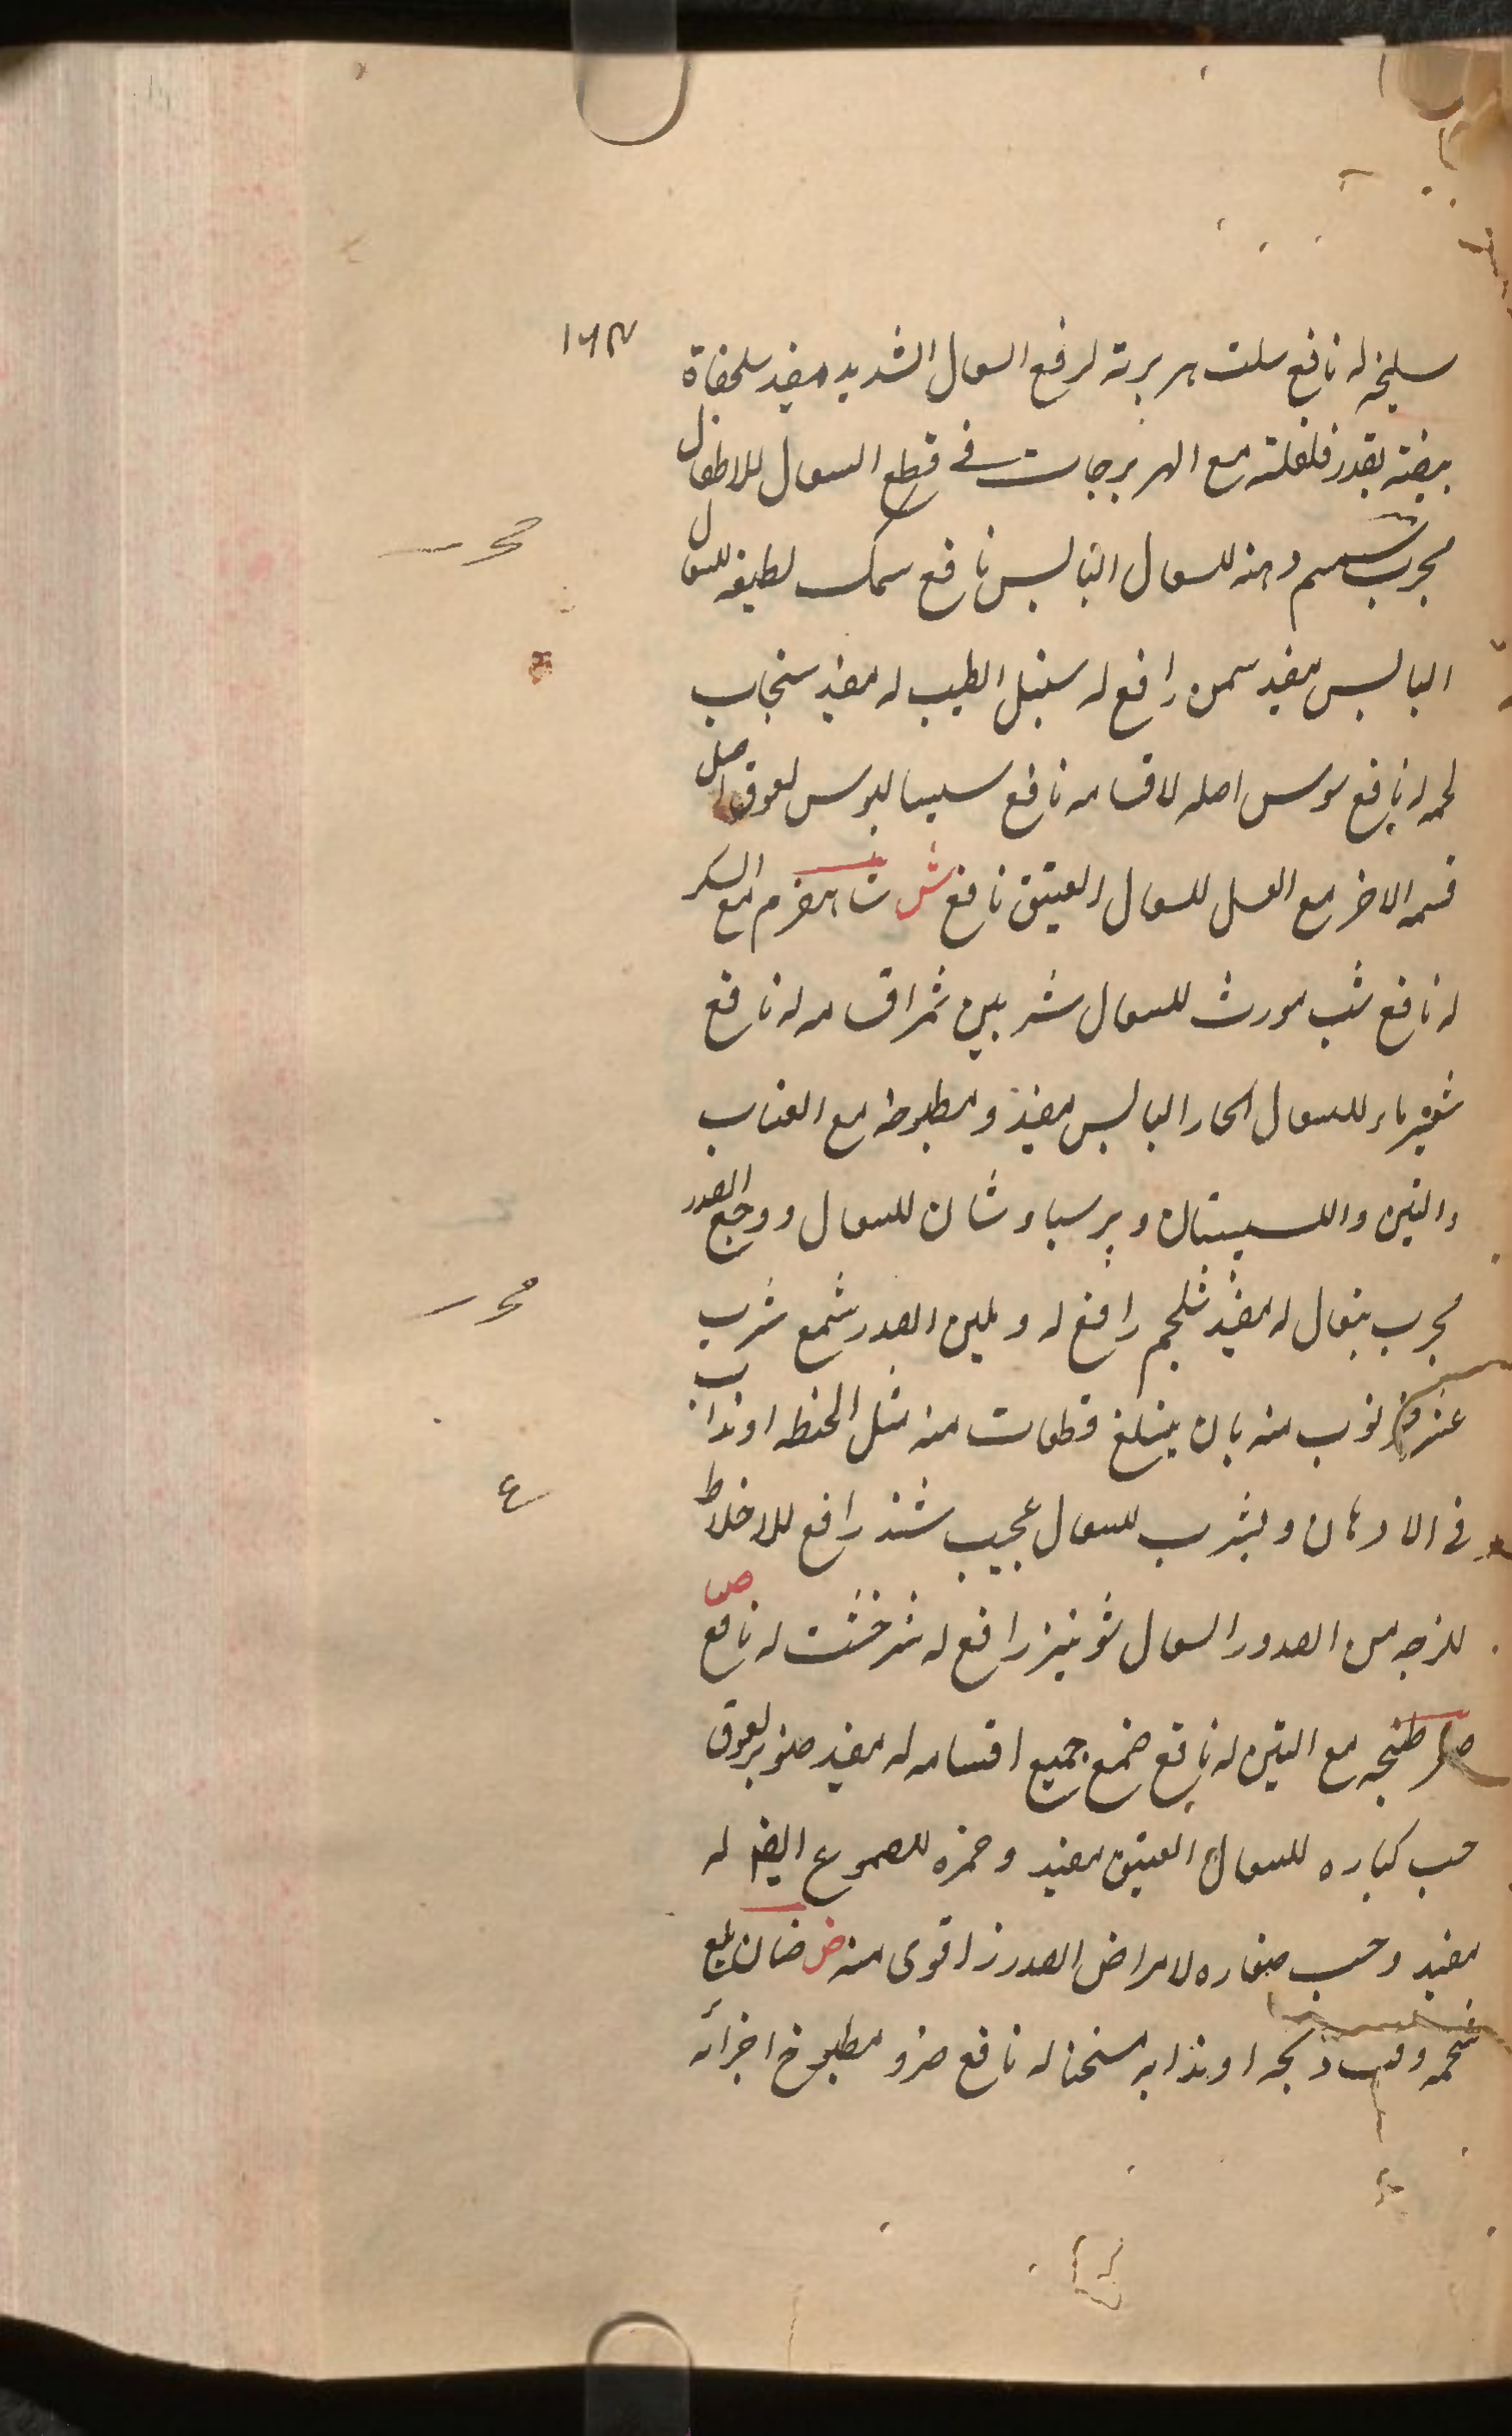 ١٦٣
سليخه له نافع سلت هريرته لرفع السعال الشديد مفيد سلحفاة
بيضته بقدر فلفلة مع الهريرجات في قطع السعال للاطفال
مجرب سمسم دهنه للسعال اليابس نافع سمك لطيفه للسعال
مجرب
اليابس مفيد سمن رافع له سنبل الطيب له مفيد سنجاب
لحمه له نافع سوس اصله لاقسامه نافع سيساليوس لعوق اصل
قسمه الاخر مع العسل للسعال العتيق نافع ش شاهفرم مع السكر
له نافع شب مورث للسعال شربين ثمر اقسامه له نافع
شعير ماءه للسعال الحار اليابس مفيد ومطبوخه مع العناب
والتين والسپستان وپرسياوشان للسعال ووجع الصدر
مجرب يتعال له مفيد شلجم رافع له وملين الصدر شمع شرب
مجرب
منه بان يبتلع قطعات منه مثل الحنطه او يذاب
في الادهان ويشرب للسعال عجيب رافع للاخلاط
ع
للزجه من الصدور السعال شونيز رافع له شيرخشت له نافع ص
طبخه مع التين له نافع صمغ جميع اقسامه له مفيد صنوبر لعوق
حب كباره للسعال العتيق مفيد وصمغه للصموغ ايضا له
مفيد وحب صغاره لامراض الصدر اقوى منه ض ضان مع
شحمه او يذابه مسخنا له نافع ضرو مطبوخ اجزائه